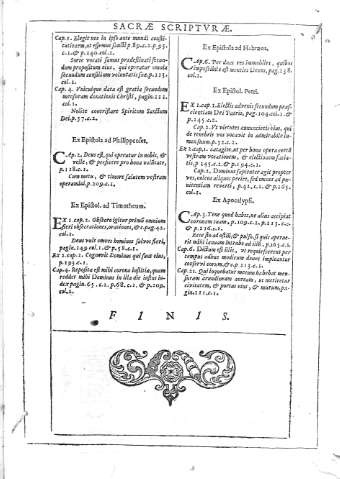 SACRÆ SCRIPTVRÆ.
Cap. 1. Elegit nos in ipso ante mundi constitutionem, ut essemus sancti p.89.c.1. p.95.
c.1. & p.140. col.1.
Sorte vocati sumus prædestinati secundum propositum eius, qui operatur omnia
secundum consilium voluntatis suæ p.113.
col.1.
Cap. 4. Vnicuique data est gratia secundum
mensuram donationis Christi, pagin.
col.1.
Nolite contristare Spiritum Sanctum
Dei. p.57. c.2.
Ex Epistola ad Philippenses.
Cap. 2. Deus est, qui operatur in nobis, &
velle, & perficere pro bona voluntate,
p.118.c.1.
Cum metu, & tremore salutem vestram
operamini. p.209.c.1.
Ex Epistol. ad Timotheum.
EX 1. cap. 2. Obsecro igitur primò omnium
fieri obsecrationes, orationes, &c. p.129.
col.1.
Deus vult omnes homines salvos fieri,
pagin.149. col.1. & p.58. c.2.
Ex 2. cap. 2. Cognovit Dominus qui sunt eius,
p.193. c.1.
Cap. 4. Reposita est mihi corona iustitiæ, quam
reddet mihi Dominus in illa die iustus Iudex
pagin.65. c.1. p.68. c.2. & p.209.
col.1.
Ex Epistola ad Hebræos.
Cap. 6. Per duas res immobiles, quibus
impossibile est mentiri Deum, pag.158.
col.1.
Ex Epistol. Petri.
EX 1. cap. 1. Electis advenis secundum præscientiam
Dei Patris, pag. 104. col.1. &
p.145. c.2.
Cap. 2. Vt virtutes annuncietis eius, qui
de tenebris vos vocavit in admirabile lumen
suum. p.72. c.1.
Ex 2. cap. 1. Satagite, ut per bona opera certam
vestram vocationem, & electionem faciatis.
p.145. c.2. & p.194. c.1.
Cap. 3. Dominus patienter agit propter
vos, nolens aliquos perire, sed omnes ad pœnitentiam
reverti, p.41. c.1. & p.163.
col.1.
Ex Apocalypsi.
Cap. 3. Tene quod habes, ne alius accipiat
coronam tuam, p.109. c.1. p.113. c.1.
& p.126. c.1.
Ecce sto ad ostium, & pulso, si quis aperuerit
mihi ianuam intrabo ad illum, p.163. c.1.
Cap. 6. Dictum est illis, ut requiescerent per
tempus adhuc modicum donec impleantur
conservi eorum, &c. p.213. c.1.
Cap. 21. Qui loquebatur mecum habebat mensuram
arundineam auream, ut metiretur
civitatem, & portas eius, & murum, pagin.
111. c.1.
F I N I S.